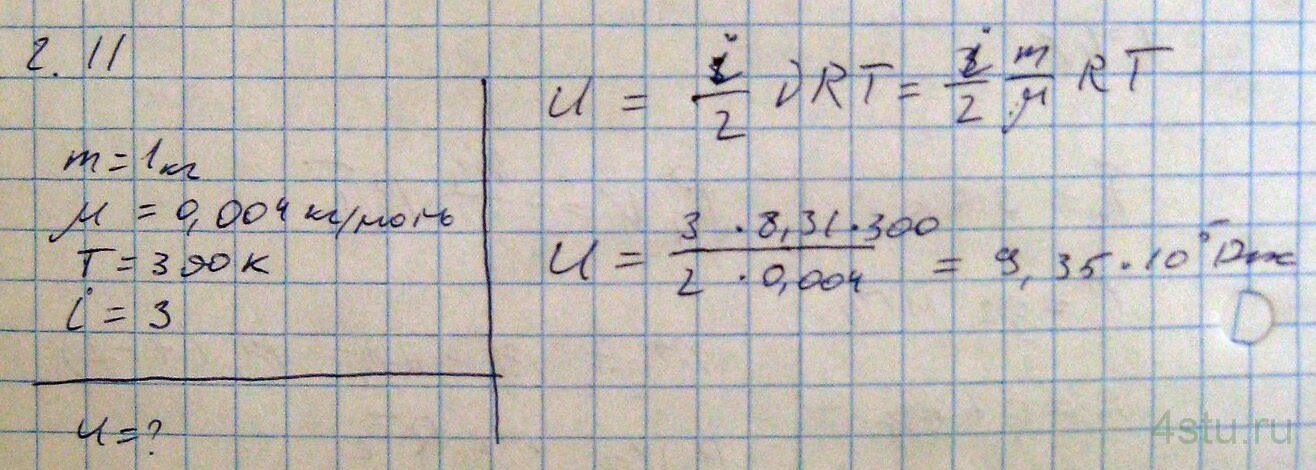 2.11
m = 1кг
μ = 0,004 кг/моль
T = 300 К
i = 3
U = ?
U = i/2 νRT = i/2 m/μ RT
U = 3 · 8,31 · 300 / 2 · 0,004 = 9,35 · 10⁵ Дж
D
4stu.ru